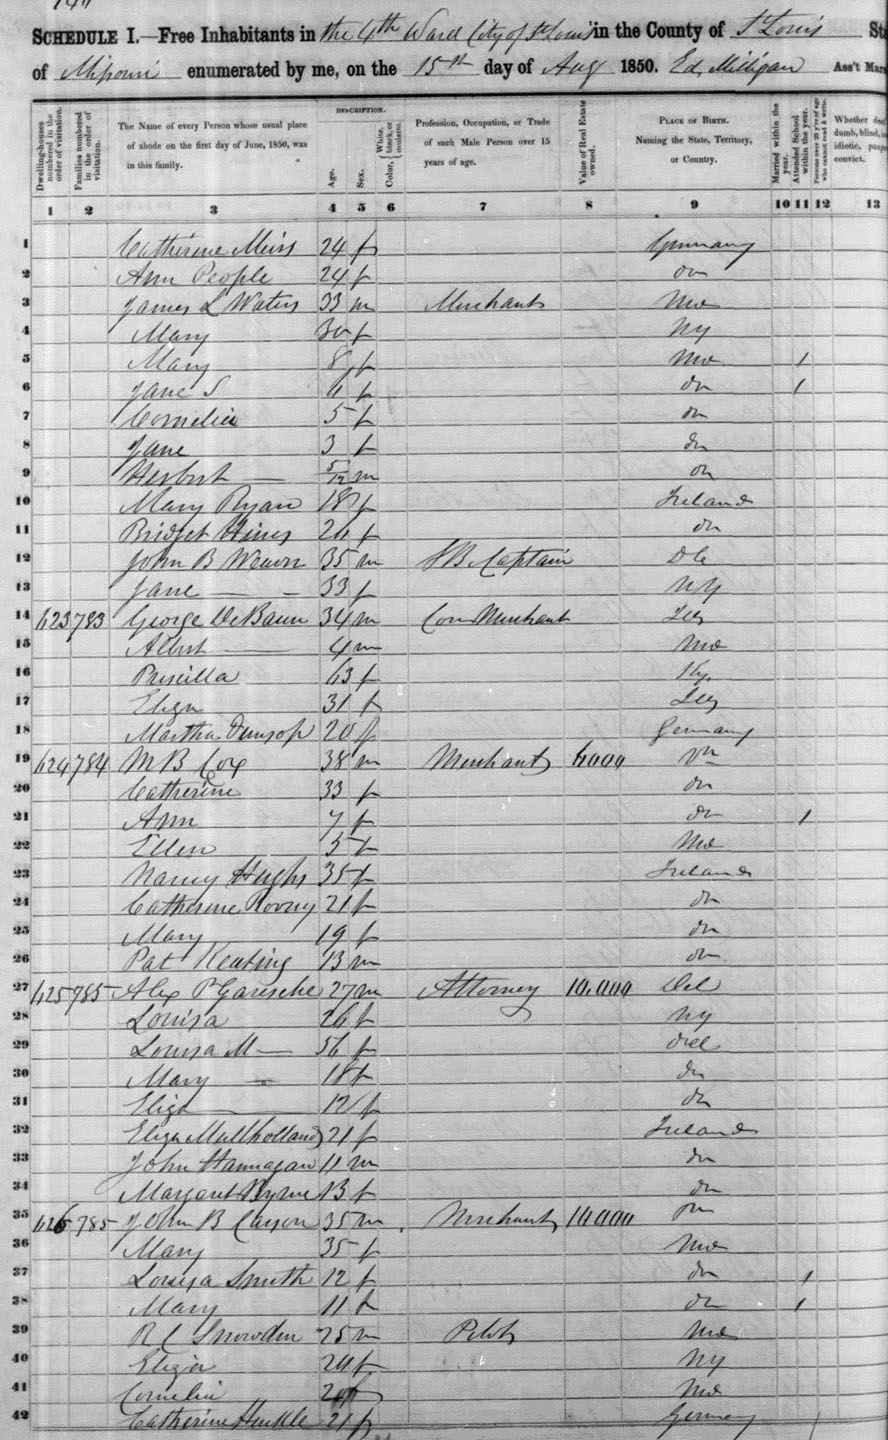 SCHEDULE I.—Free Inhabitants in the 4th Ward City of St Louis in the County of St Louis
of Missouri enumerated by me, on the 15th day of Aug 1850. Ed. Milligan Ass't Mars
Dwelling-houses numbered in the order of visitation.
Families numbered in the order of visitation.
The Name of every Person whose usual place of abode on the first day of June, 1850, was in this family.
DESCRIPTION.
Age.
Sex.
Color, White, black, or mulatto.
Profession, Occupation, or Trade of each Male Person over 15 years of age.
Value of Real Estate owned.
PLACE OF BIRTH. Naming the State, Territory, or Country.
Married within the year.
Attended School within the year.
Persons over 20 y'rs of age who cannot read & write.
Whether deaf dumb, blind, idiotic, convict.
1 2 3 4 5 6 7 8 9 10 11 12 13
1 Catherine 24 f Germany
2 Ann People 24 f do
3 James L Waters 33 m Merchant Mo
4 Mary 30 f NY
5 Mary 8 f Mo 1
6 Jane S 6 f do 1
7 Cornelia 5 f do
8 Jane 3 f do
9 Herbert — 5/12 m do
10 Mary Ryan 18 f Ireland
11 Bridget Hines 24 f do
12 John B 35 m S B Captain
13 Jane — 33 f NY
14 623 783 George DeBaun 34 m Com Merchant
15 Albert — 4 m Mo
16 Priscilla 63 f Ky
17 Eliza 31 f
18 Martha 20 f Germany
19 624 784 M B Cox 38 m Merchant 6,000
20 Catherine 33 f do
21 Ann 7 f do 1
22 Ellen 5 f Mo
23 Nancy Hughs 35 f Ireland
24 Catherine 21 f do
25 Mary 19 f do
26 Pat Keating 13 m do
27 625 785 Alex P Garesche 27 m Attorney 10,000 Del
28 Louisa 26 f NY
29 Louisa M — 56 f Del
30 Mary — 18 f do
31 Eliza — 12 f do
32 Eliza Mullholland 21 f Ireland
33 John Hannagan 11 m do
34 Margaret Byrne 13 f do
35 626 785 John B Carson 35 m Merchant 10,000
36 Mary 35 f Mo
37 Louisa Smith 12 f do 1
38 Mary 11 f do 1
39 R C Snowden 25 m Pilot Md
40 Eliza 24 f NY
41 Cornelia f Mo
42 Catherine Hinkle 21 f Germany